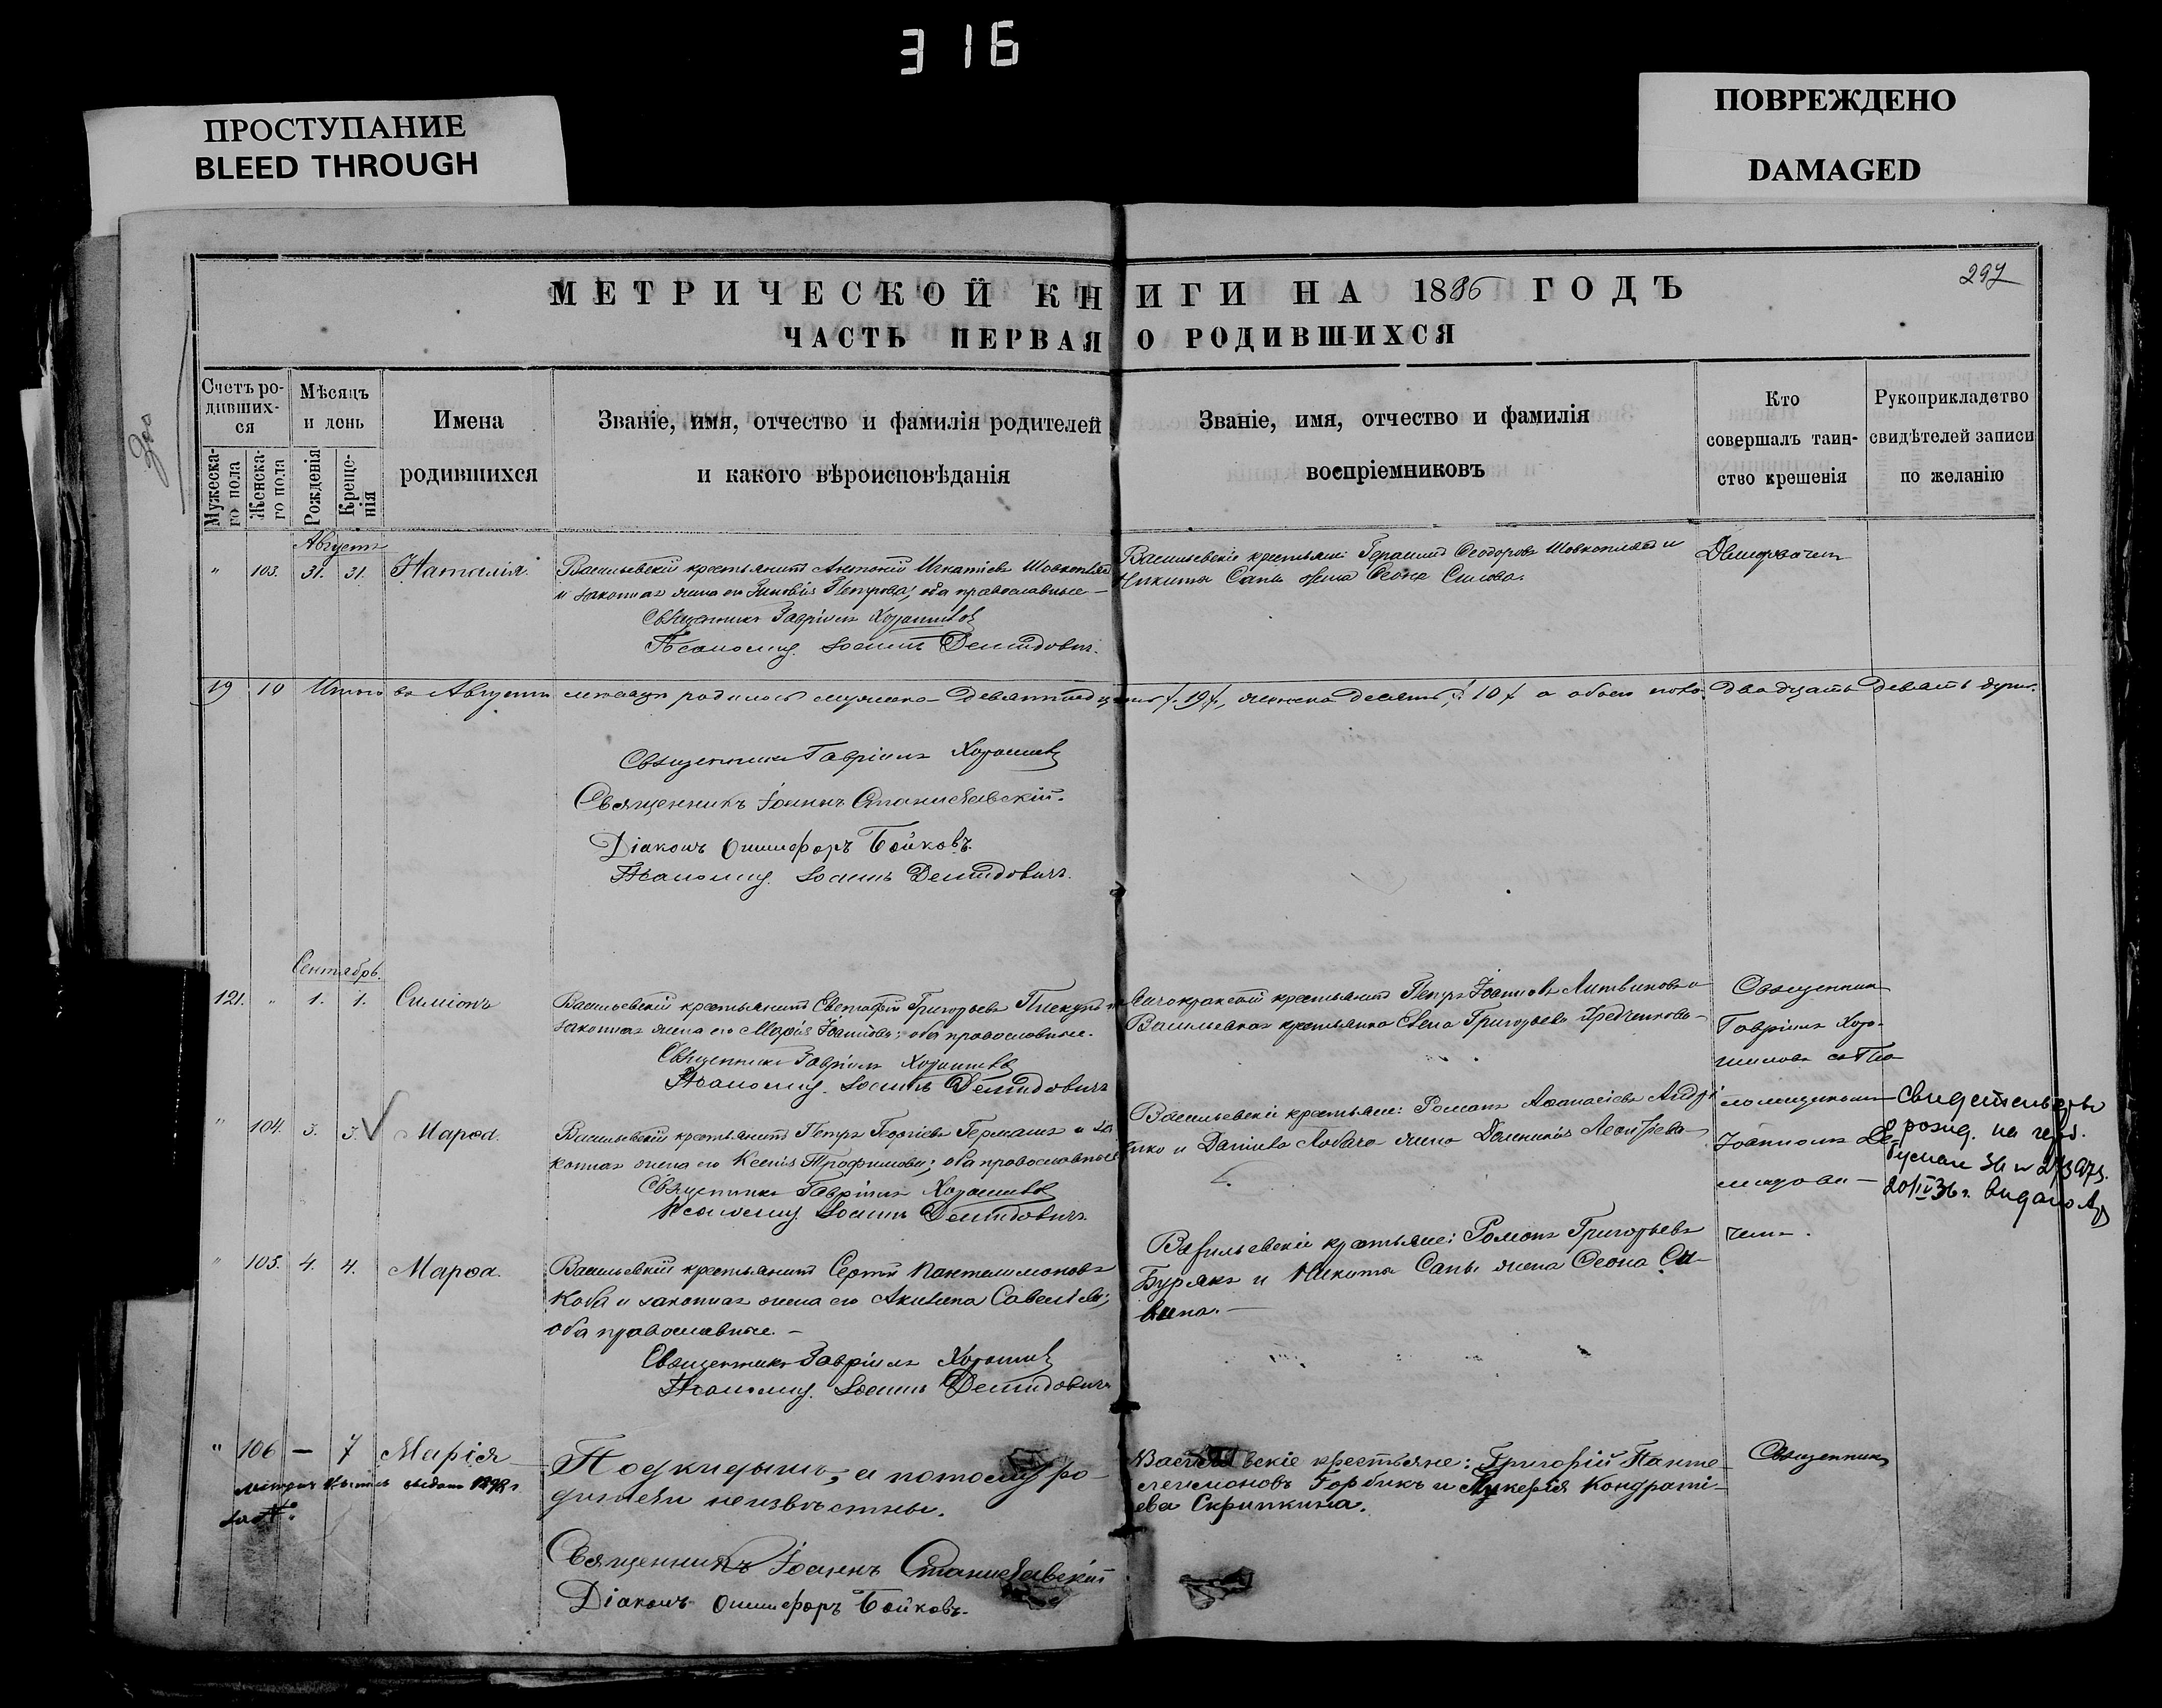 316
ПРОСТУПАНИЕ
BLEED THROUGH
ПОВРЕЖДЕНО
DAMAGED
297
МЕТРИЧЕСКОЙ КНИГИ НА 1886 ГОДЪ
ЧАСТЬ ПЕРВАЯ О РОДИВШИХСЯ
Счетъ ро-
дивших-
ся
Мужеска-
го пола
Женска-
го пола
Мѣсяцъ
и день
Рожденія
Креще-
нія
Имена
родившихся
Званіе, имя, отчество и фамилія родителей
и какого вѣроисповѣданія
Званіе, имя, отчество и фамилія
воспріемниковъ
Кто
совершалъ таин-
ство крещенія
Рукоприкладство
свидѣтелей записи
по желанію
Августъ
" 103. 31. 31. Наталія.
Васильевскій крестьянинъ Антоній Игнатіевъ
и законная жена его Зиновія Петрова; оба православные —
Священникъ Гавріилъ Хорошиловъ
Псаломщ. Іоаннъ Демидовичъ.
Васильевскіе крестьяне: Герасимъ Феодоровъ и
Никиты Сапы жена Феона
19 10 Итого въ Августѣ мѣсяцѣ родилось мужеска – девятнадцать /:19:/, женска десять /:10:/ а обоего пола двадцать девять душъ.
Священникъ Гавріилъ Хорошиловъ
Священникъ Іоаннъ Станиславскій.
Діаконъ Онисифоръ Бойковъ.
Псаломщ. Іоаннъ Демидовичъ.
Сентябрь.
121. " 1. 1. Симіонъ
Васильевскій крестьянинъ Евстафій Григорьевъ
законная жена его Марія Іоаннова; оба православные.
Священникъ Гавріилъ Хорошиловъ
Псаломщ. Іоаннъ Демидовичъ
крестьянинъ Петръ Іоанновъ Литвиновъ и
Васильевская крестьянка Елена Григорьева
Священникъ
Гавріилъ Хоро-
шиловъ съ Пса-
ломщикомъ
Іоанномъ Де-
мидови-
чемъ.
" 104. 3. 3. Марѳа.
Васильевскій крестьянинъ Петръ Георгіевъ Германъ и за-
конная жена его Ксенія Трофимова; оба православные
Священникъ Гавріилъ Хорошиловъ
Псаломщ. Іоаннъ Демидовичъ.
Васильевскіе крестьяне: Романъ Аѳанасіевъ
и Даніила Лобача жена Домникія Леонтіева
20/IV 36 г.
" 105. 4. 4. Марѳа.
Васильевскій крестьянинъ Сергій Пантелимоновъ
Коба и законная жена его Акилина Савеліева;
оба православные. —
Священникъ Гавріилъ Хорошиловъ
Псаломщ. Іоаннъ Демидовичъ
Васильевскіе крестьяне: Романъ Григорьевъ
Бурякъ и Никиты Сапы жена Феона Са-
вина. —
" 106 — 7 Марія
Подкидышъ, а потому ро-
дители неизвѣстны.
Священникъ Іоаннъ Станиславскій
Діаконъ Онисифоръ Бойковъ.
Васильевскіе крестьяне: Григорій Панте-
леимоновъ Горбикъ и Лукерія Кондрати-
ева Скрипкина.
Священникъ